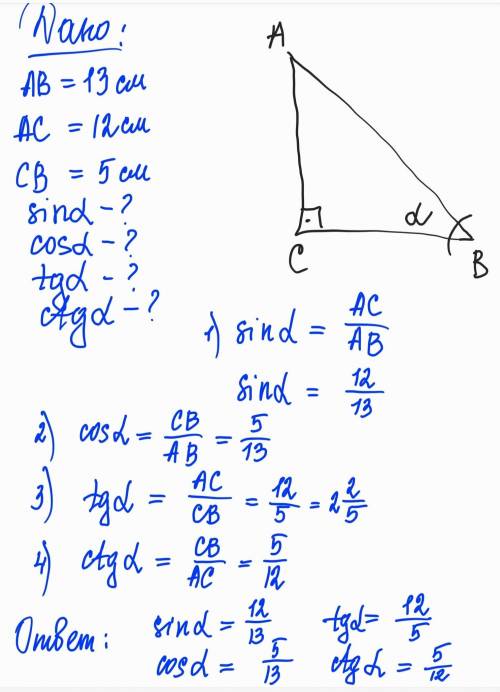 Дано:
AB = 13 см
AC = 12 см
CB = 5 см
sinα - ?
cosα - ?
tgα - ?
ctgα - ?
A
C
α
B
1) sinα = AC/AB
sinα = 12/13
2) cosα = CB/AB = 5/13
3) tgα = AC/CB = 12/5 = 2 2/5
4) ctgα = CB/AC = 5/12
Ответ: sinα = 12/13 tgα = 12/5
cosα = 5/13 ctgα = 5/12